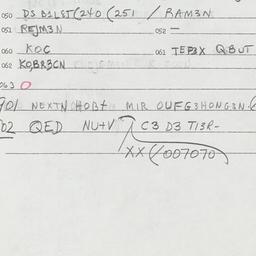 050 DS D1LST(240 (251 / RAM3N
051 REJM3N 052 —
060 KOC 061 TEP3X QBUT
062 KO,BR3CN
063 O
901 NEXTN HOBT MIR OUFG3HONG3N
902 QED NUTV C3 D3 T13R-
XX (/007070